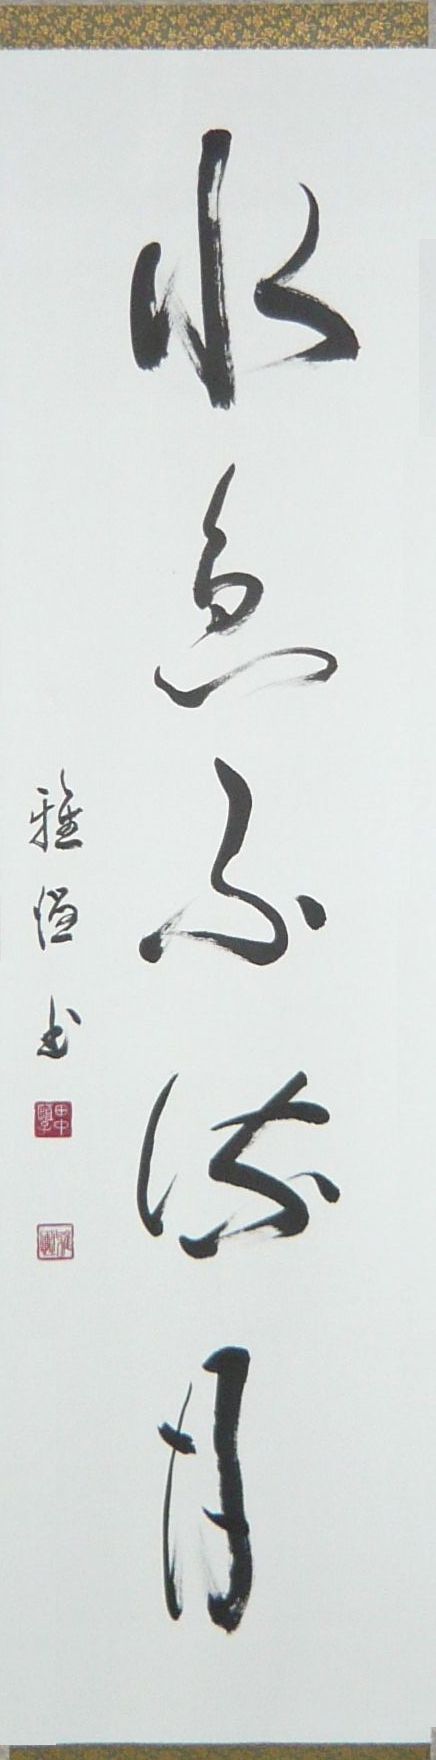 水急不流月
雅
書